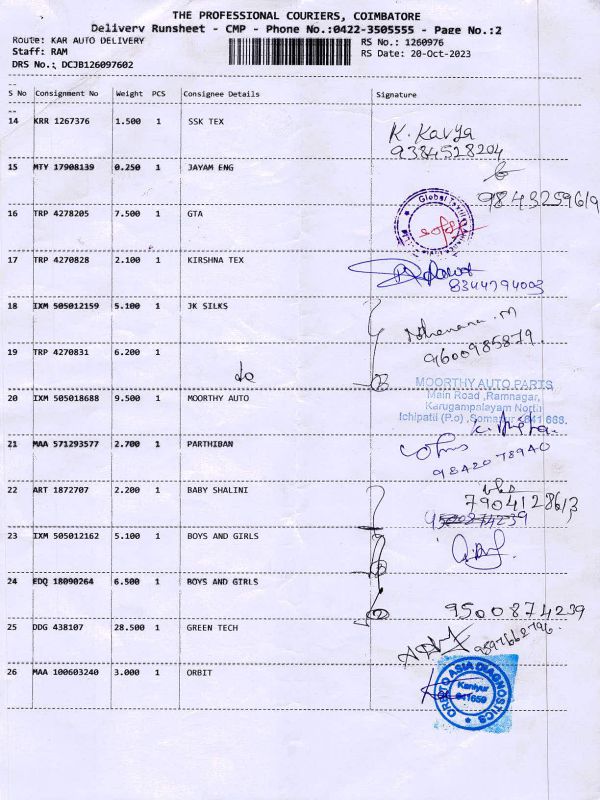 THE PROFESSIONAL COURIERS, COIMBATORE
Delivery Runsheet - CMP - Phone No.:0422-3505555 - Page No.:2
Route: KAR AUTO DELIVERY
RS No.: 1260976
Staff: RAM
RS Date: 20-Oct-2023
DRS No.: DCJB126097602
S No Consignment No Weight PCS Consignee Details Signature
14 KRR 1267376 1.500 1 SSK TEX
K. Kavya
9384528204
15 MTY 17908139 0.250 1 JAYAM ENG
9843259619
16 TRP 4278205 7.500 1 GTA
Global
17 TRP 4270828 2.100 1 KIRSHNA TEX
8344794003
18 IXM 505012159 5.100 1 JK SILKS
9600985879.
19 TRP 4270831 6.200 1
do
20 IXM 505018688 9.500 1 MOORTHY AUTO
MOORTHY AUTO PARTS
Main Road, Ramnagar,
Karugampalayam North
Ichipatti (P.o)
21 MAA 571293577 2.700 1 PARTHIBAN
9842078940
22 ART 1872707 2.200 1 BABY SHALINI
7904128613
23 IXM 505012162 5.100 1 BOYS AND GIRLS
24 EDQ 18090264 6.500 1 BOYS AND GIRLS
9500874239
25 DDG 438107 28.500 1 GREEN TECH
9597662796.
26 MAA 100603240 3.000 1 ORBIT
ASIA DIAGNOSTICS
Kaniyur
641659